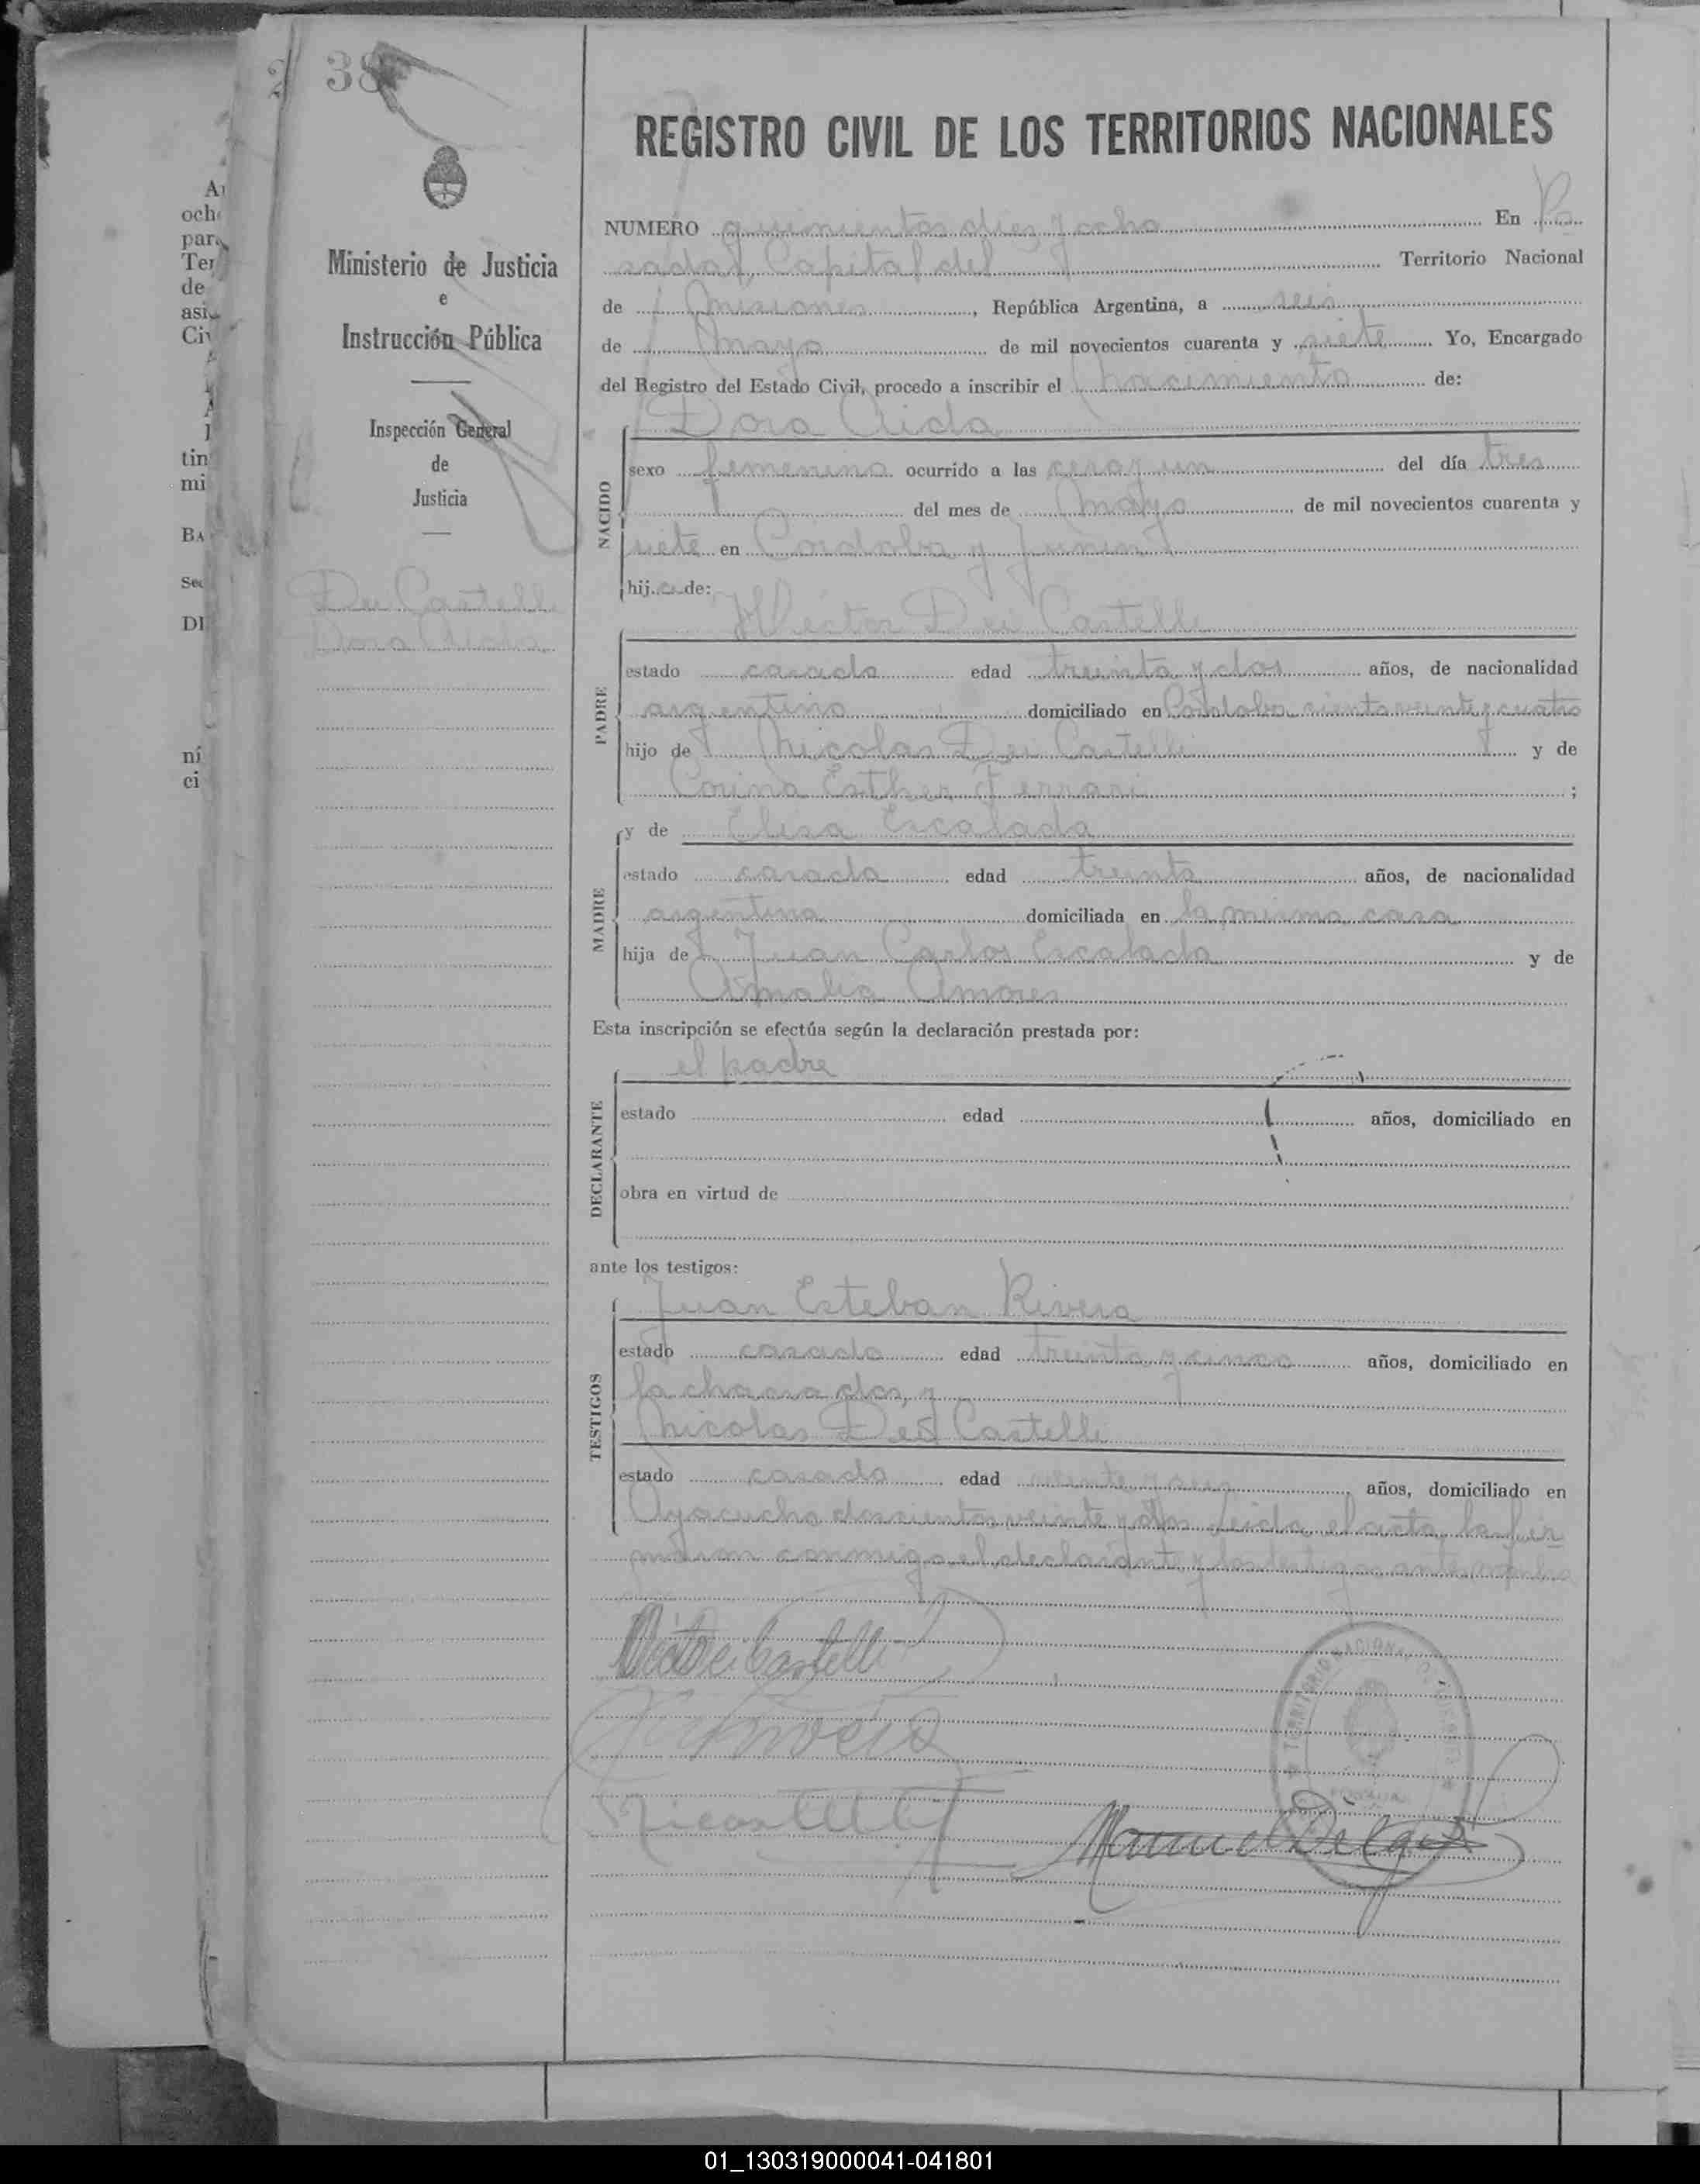 38
REGISTRO CIVIL DE LOS TERRITORIOS NACIONALES
Ministerio de Justicia
e
Instrucción Pública
Inspección General
de
Justicia
Dei Castelli
Dora Aida
NUMERO quinientos diez y ocho En Po
sadas, Capital del Territorio Nacional
de Misiones, República Argentina, a seis
de Mayo de mil novecientos cuarenta y siete Yo, Encargado
del Registro del Estado Civil, procedo a inscribir el nacimiento de:
Dora Aida
NACIDO
sexo femenino ocurrido a las cero y un del día tres
del mes de Mayo de mil novecientos cuarenta y
siete en Cordoba y Junin
hija de:
Héctor Dei Castelli
PADRE
estado casado edad treinta y dos años, de nacionalidad
argentino domiciliado en Cordoba ciento veinte y cuatro
hijo de Nicolas Dei Castelli y de
Corina Esther Ferrari ;
y de Elisa Escalada
MADRE
estado casada edad treinta años, de nacionalidad
argentina domiciliada en la misma casa
hija de Juan Carlos Escalada y de
Amalia Amores
Esta inscripción se efectúa según la declaración prestada por:
el padre
DECLARANTE
estado edad años, domiciliado en
obra en virtud de
ante los testigos:
Juan Esteban Rivera
TESTIGOS
estado casado edad treinta y cinco años, domiciliado en
la chacra dos, y
Nicolas Dei Castelli
estado casado edad veinte y años, domiciliado en
Ayacucho doscientos veinte y dos Leida el acta la fir
maron conmigo el declarante y los testigos
Dei Castelli
Manuel
TERRITORIO NACIONAL
01_130319000041-041801